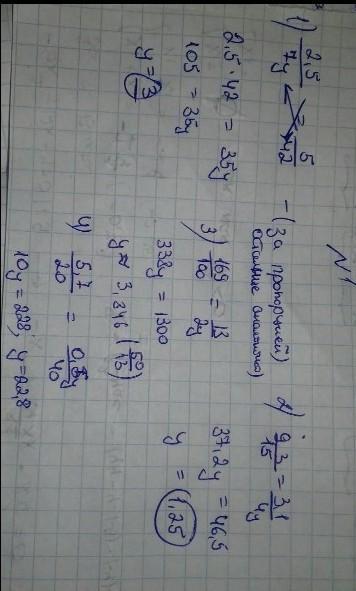 N 1
1) 2,5/7y = 5/42 – (за пропорцией)
остальные аналогично)
2,5 · 42 = 35y
105 = 35y
y = 3
2) 9,3/15 = 3,1/4y
37,2y = 46,5
y = 1,25
3) 169/100 = 13/2y
338y = 1300
y ≈ 3,846 (50/13)
4) 5,7/20 = 0,5y/40
10y = 228, y = 22,8